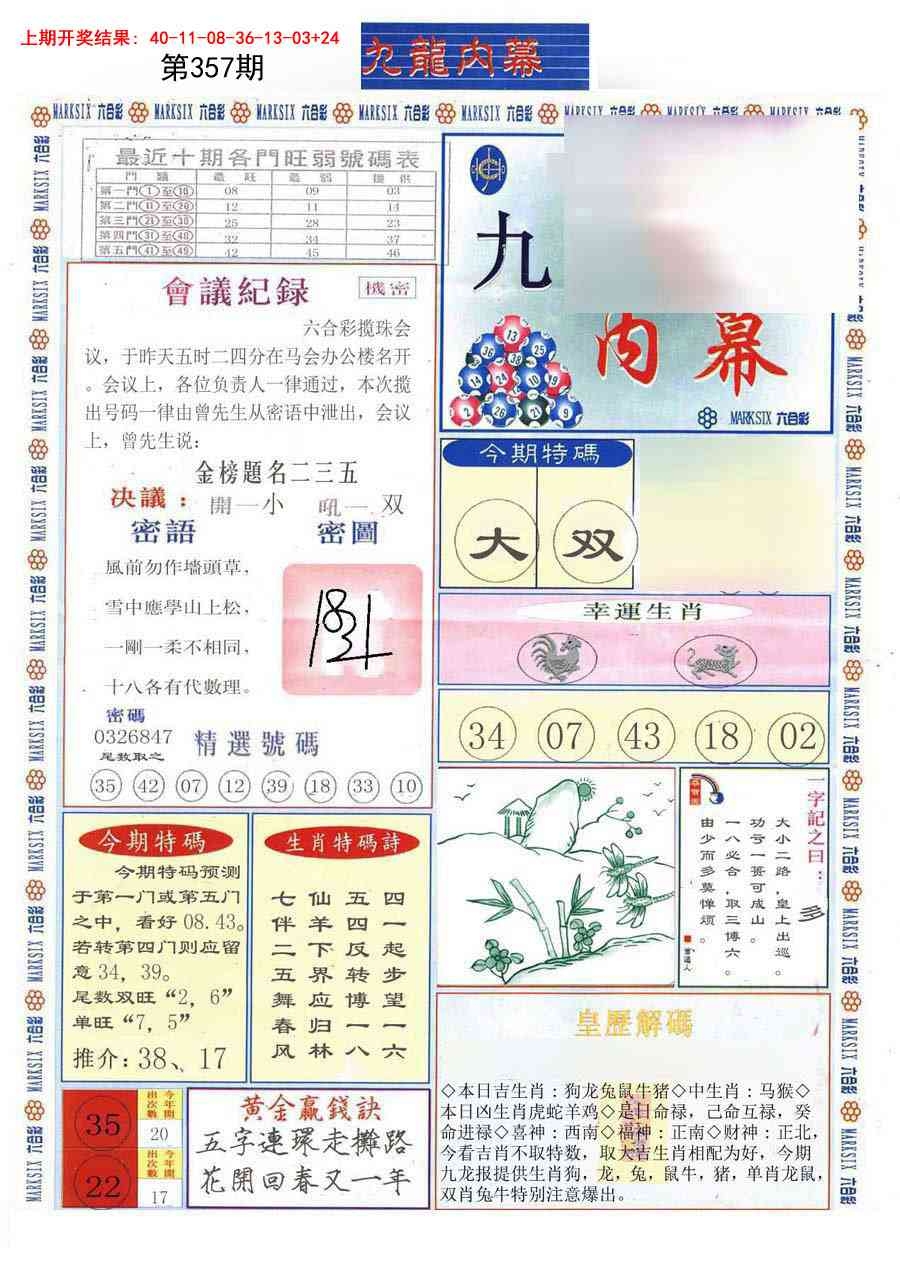 上期开奖结果: 40-11-08-36-13-03+24
第357期
九龍内幕
MARKSIX 六合彩 MARKSIX 六合彩 MARKSIX 六合彩 MARKSIX 六合彩 MARKSIX 六合彩 MARKSIX 六合彩 MARKSIX 六合彩 MARKSIX 六合彩
最近十期各門旺弱號碼表
門 類 最 旺 最 弱 提 供
第一門①至⑩ 08 09 03
第二門⑪至⑳ 12 11 14
第三門㉑至㉚ 25 28 23
第四門㉛至㊵ 32 34 37
第五門㊶至㊾ 42 45 46
九
内幕
13
36 38 25
14 24 10 19
2 26 21 9
MARKSIX 六合彩
會議紀録
機密
六合彩揽珠会
议，于昨天五时二四分在马会办公楼名开
。会议上，各位负责人一律通过，本次揽
出号码一律由曾先生从密语中泄出，会议
上，曾先生说:
金榜題名二三五
决議：開一小 吼一双
密語 密圖
風前勿作墻頭草，
雪中應學山上松，
一剛一柔不相同，
十八各有代數理。
密碼
0326847
尾数取之
精選號碼
35 42 07 12 39 18 33 10
今期特碼
大 双
幸運生肖
34 07 43 18 02
一字記之曰：
多
大小二路，皇上出巡。
功亏一篑可成山。
一八必合，取三博六。
由少而多莫惮烦。
今期特碼
今期特码预测
于第一门或第五门
之中，看好 08.43。
若转第四门则应留
意 34，39。
尾数双旺“2，6”
单旺“7，5”
推介: 38、17
生肖特碼詩
四一起步望一六
五四反转博一八
仙羊下界应归林
七伴二五舞春风
皇歷解碼
◇本日吉生肖：狗龙兔鼠牛猪◇中生肖：马猴◇
本日凶生肖虎蛇羊鸡◇是日命禄，己命互禄，癸
命进禄◇喜神：西南◇福神：正南◇财神：正北，
今看吉肖不取特数，取大吉生肖相配为好，今期
九龙报提供生肖狗，龙，兔，鼠牛，猪，单肖龙鼠，
双肖兔牛特别注意爆出。
35
今年開出次數
20
22
今年開出次數
17
黄金赢錢訣
五字連環走攤路
花開回春又一年